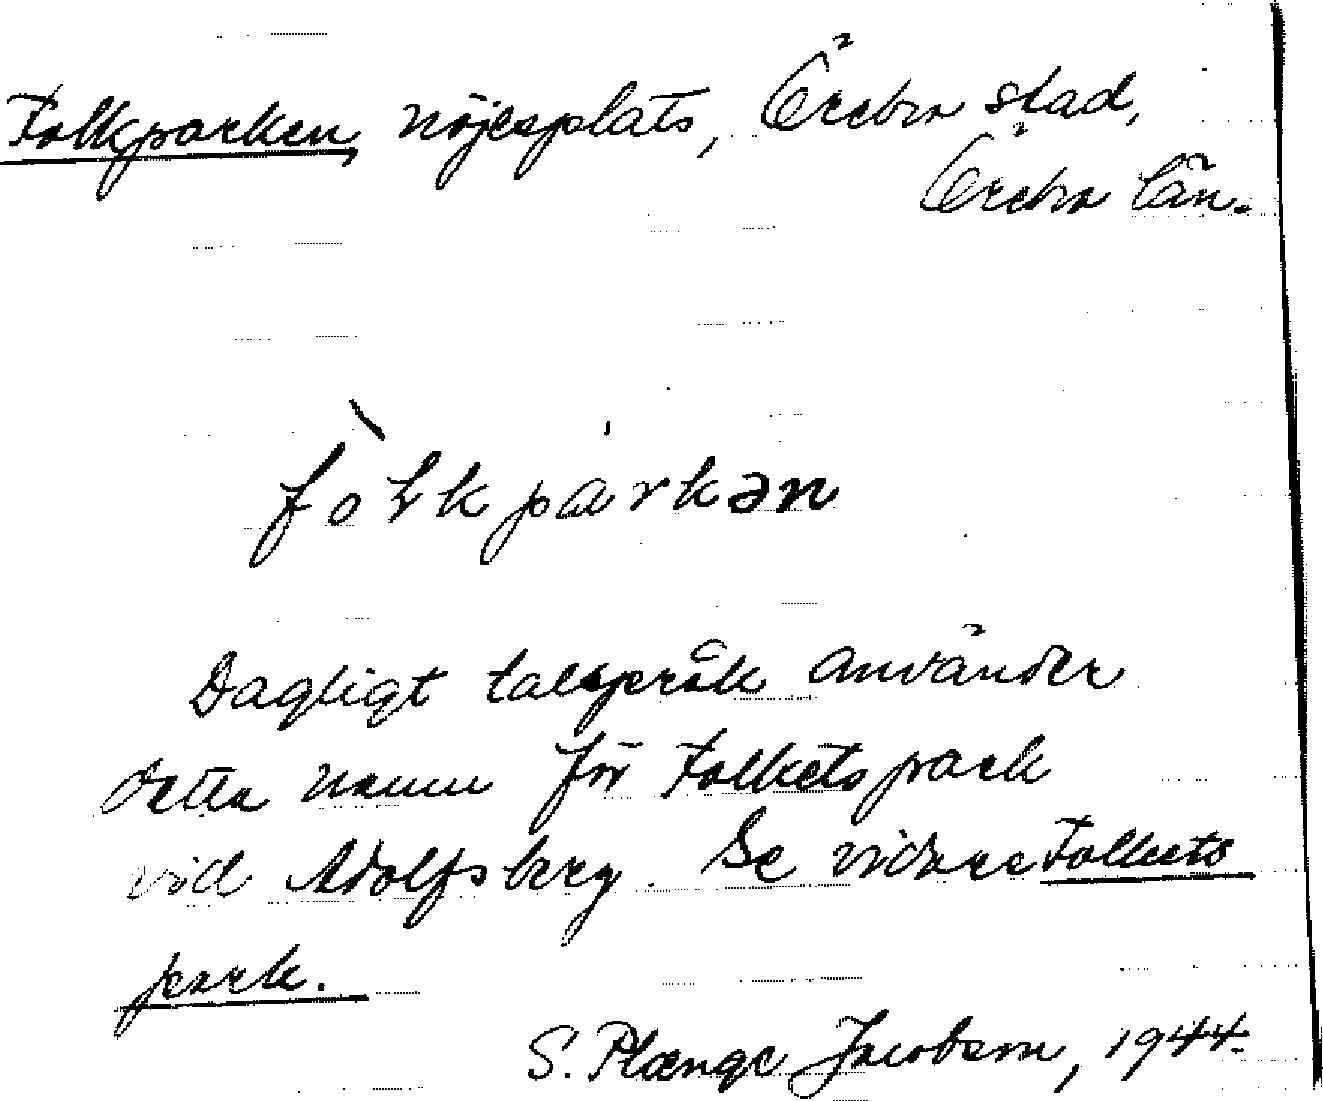 Folkparken, nöjesplats, Örebro stad,
Örebro län.
fòlkpárkən
Dagligt talspråk använder
detta namn för Folkets park
vid Adolfsberg. Se vidare Folkets
park.
S. Plænge Jacobson, 1944.